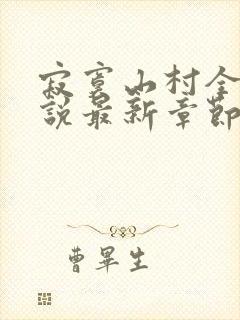 寂寞山村全
說最新章節
曹畢生